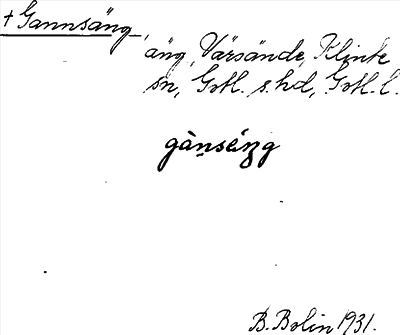 + Gannsäng,
äng, Värsände, Klinte
sn, Gotl. s. hd, Gotl. l.
gànséŋg
B. Bolin 1931.